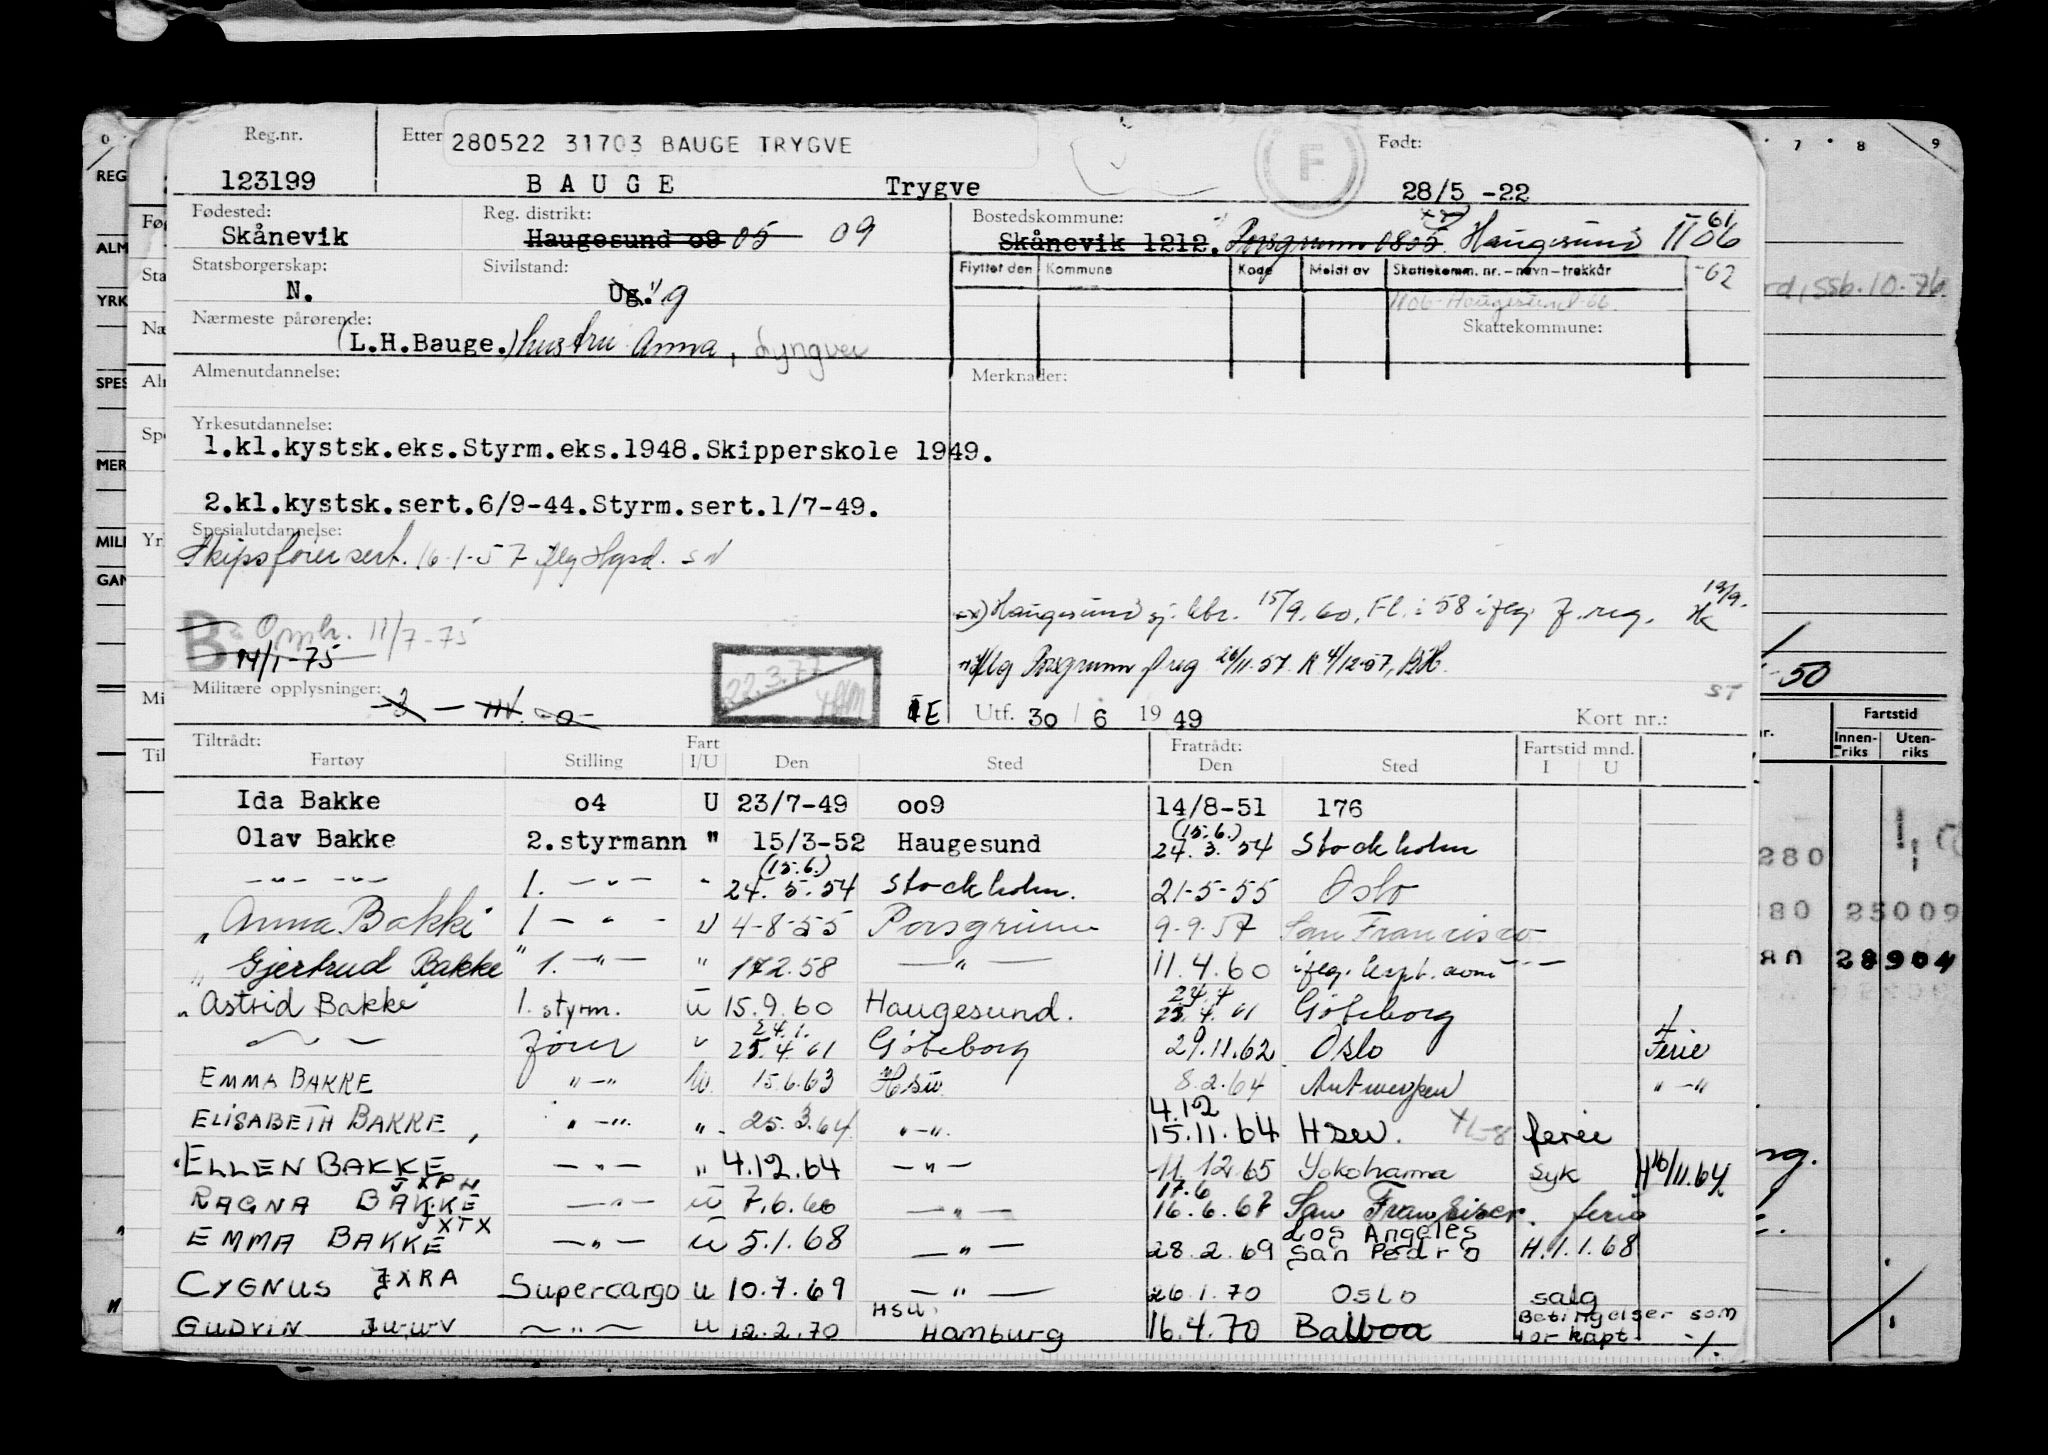 Reg.nr. Etter 280522 31703 BAUGE TRYGVE F Født:
123199 BAUGE Trygve 28/5 -22
Fødested: Reg. distrikt: Bostedskommune:
Skånevik Haugesund o9 05 09 Skånevik 1212. Porsgrunn 0805 Haugesund 1106 61
Statsborgerskap: Sivilstand: Flyttet den Kommune Kode Meldt av Skattekomm. nr. – navn – trekkår -62
N. Ug. g 1106-Haugesund-66.
Nærmeste pårørende: Skattekommune:
(L.H.Bauge.) hustru Anna, Lyngvei
Almenutdannelse: Merknader:
Yrkesutdannelse:
1.kl.kystsk.eks.Styrm.eks.1948.Skipperskole 1949.
2.kl.kystsk.sert.6/9-44.Styrm.sert.1/7-49.
Spesialutdannelse:
Skipsfører sert. 16-1-57 iflg Hgsd. SN
xx) Haugesund sj. 15/9.60, Fl. i 58 iflg. f. reg. 19/9. HK
B Omb. 11/7-75
14/1-75
22.3.77
iflg Porsgrunn f reg 26/11-57. R 4/12-57,
Militære opplysninger: E Utf. 30 / 6 19 49 Kort nr.: ST
Tiltrådt: Fart Fratrådt: Fartstid mnd.
Fartøy Stilling I/U Den Sted Den Sted I U
Ida Bakke o4 U 23/7-49 oo9 14/8-51 176
Olav Bakke 2.styrmann " 15/3-52 Haugesund (15.6.) 24.3.54 Stockholm
-"- -"- 1. -"- " (15.6.) 24.5.54 Stockholm. 21-5-55 Oslo
" Anna Bakke 1 - " - U 4-8-55 Porsgrunn 9-9-57 San Francisco
" Gjertrud Bakke " 1. -"- " 17.2.58 -"- 11.4.60 iflg.
" Astrid Bakke 1. styrm. U 15.9.60 Haugesund. 24.4 25.4.61 Göteborg
fører " 24.1. 25.4.61 Göteborg 29.11.62 Oslo Ferie
EMMA BAKKE "-" U 15.6.63 Hsu 8.2.64 Antwerpen "-"
ELISABETH BAKKE, "-". ". 25.3.64 "-". 4.12 15.11.64 Hsu. ferie
ELLEN BAKKE -"- " 4.12.64 -"- 11.12.65 Yokohama syk H 16/11.64
RAGNA BAKKE JXPN -"- U 7.6.66 -"- 17.6 16.6.67 San Francisco. ferie
EMMA BAKKE JXTX -"- U 5.1.68 -"- 28.2.69 Los Angeles San Pedro H.1.1.68
CYGNUS JXRA Supercargo U 10.7.69 -"- 26.1.70 Oslo salg
GUDRIN JWWV -"- U 12.2.70 HSU. Hamburg 16.4.70 Balboa Betingelser som for kapt.
0 7 8 9
REG
ALM
YRK
SPES
MER
MILI
GAN
Fø
Sta
Næ
Alm
Spe
Yr
Mi
Til
10.76.
-50
Fartstid
Innen-riks Uten-riks
280
180 25009
80 28904